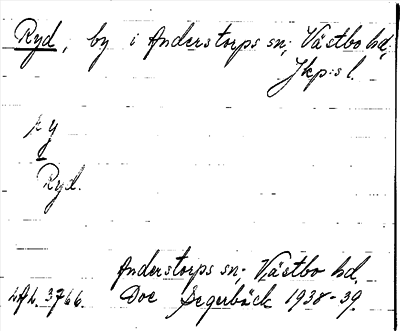 Ryd, by i Anderstorps sn; Västbo hd;
Jkp:s l.
ry
Ryd.
Anderstorps sn; Västbo hd.
3766. Doc Segerbäck 1938-39.